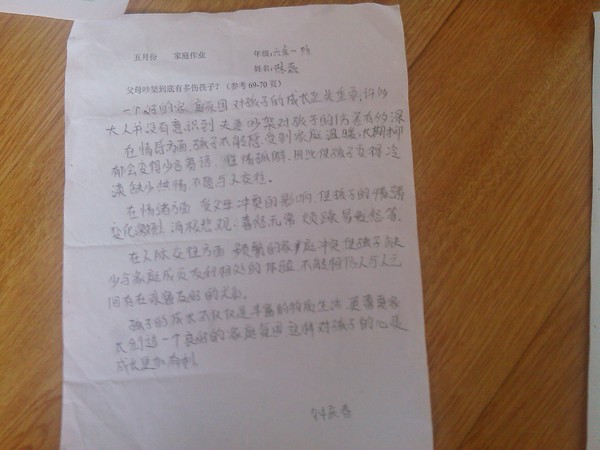 五月份 家庭作业 年级:六年一班
姓名:
父母吵架到底有多伤孩子?(参考69-70页)
一个好的家庭氛围对孩子的成长至关重要,许多
大人并没有意识到夫妻吵架对孩子的伤害有多深
在情感方面,孩子不能感受到家庭温暖,长期抑
郁会变得少言寡语,性情孤僻,因此使孩子变得冷
漠缺少热情不愿与人交往.
在情绪方面 受父母冲突的影响,使孩子的情绪
变化激烈,消极悲观,喜怒无常 烦躁易怒等.
在人际交往方面 频繁的家庭冲突,使孩子缺
少与家庭成员友好相处的体验,不能相信人与人之
间存在亲密友好的关系.
孩子的成长不仅仅是丰富的物质生活,更需要家
长创造一个良好的家庭氛围 这样对孩子的心灵
成长更加有利